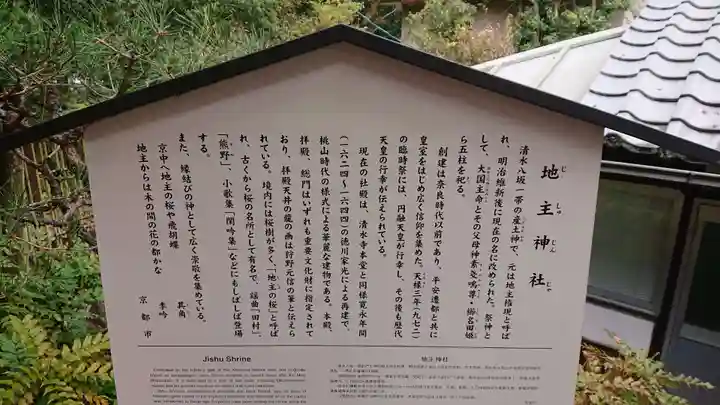 地主神社
じしゅじんじゃ
清水八坂一帯の産土神で、元は地主権現と呼ば
れ、明治維新後に現在の名に改められた。祭神と
して、大国主命とその父母神素戔嗚尊・櫛名田姫
ら五柱を祀る。
創建は奈良時代以前であり、平安遷都と共に
皇室をはじめ広く信仰を集めた。天禄三年(九七二)
の臨時祭には、円融天皇が行幸し、その後も歴代
天皇の行幸が伝えられている。
現在の社殿は、清水寺本堂と同様寛永年間
(一六二四〜一六四四)の徳川家光による再建で、
桃山時代の様式による華麗な建物である。本殿、
拝殿、総門はいずれも重要文化財に指定されて
おり、拝殿天井の龍の画は狩野元信の筆と伝えら
れている。境内には桜樹が多く、「地主の桜」と呼ば
れ、古くから桜の名所として有名で、謡曲「田村」、
「熊野」、小歌集「閑吟集」などにもしばしば登場
する。
また、縁結びの神として広く崇敬を集めている。
京中へ地主の桜や飛胡蝶 其角
地主からは木の間の花の都かな 季吟
京都市
Jishu Shrine
地主神社